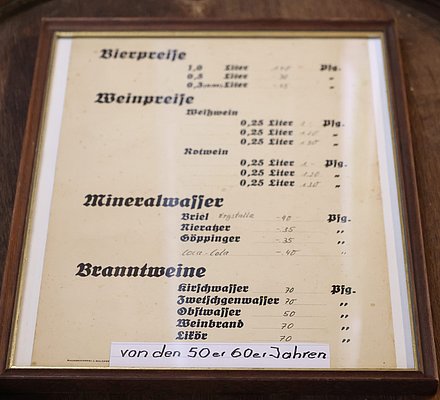 Bierpreise
1,0 Liter 140 Pfg.
0,5 Liter 70 „
0,3 Liter -45 „
Weinpreise
Weißwein
0,25 Liter 1.- Pfg.
0,25 Liter 1.20 „
0,25 Liter 1.30 „
Rotwein
0,25 Liter 1.- Pfg.
0,25 Liter 1.20 „
0,25 Liter 1.30 „
Mineralwasser
Briel Krystalle -40 Pfg.
Nieratzer -35 „
Göppinger -35 „
Coca-Cola -40 „
Branntweine
Kirschwasser 70 Pfg.
Zwetschgenwasser 70 „
Obstwasser 50 „
Weinbrand 70 „
Likör 70 „
von den 50er 60er Jahren